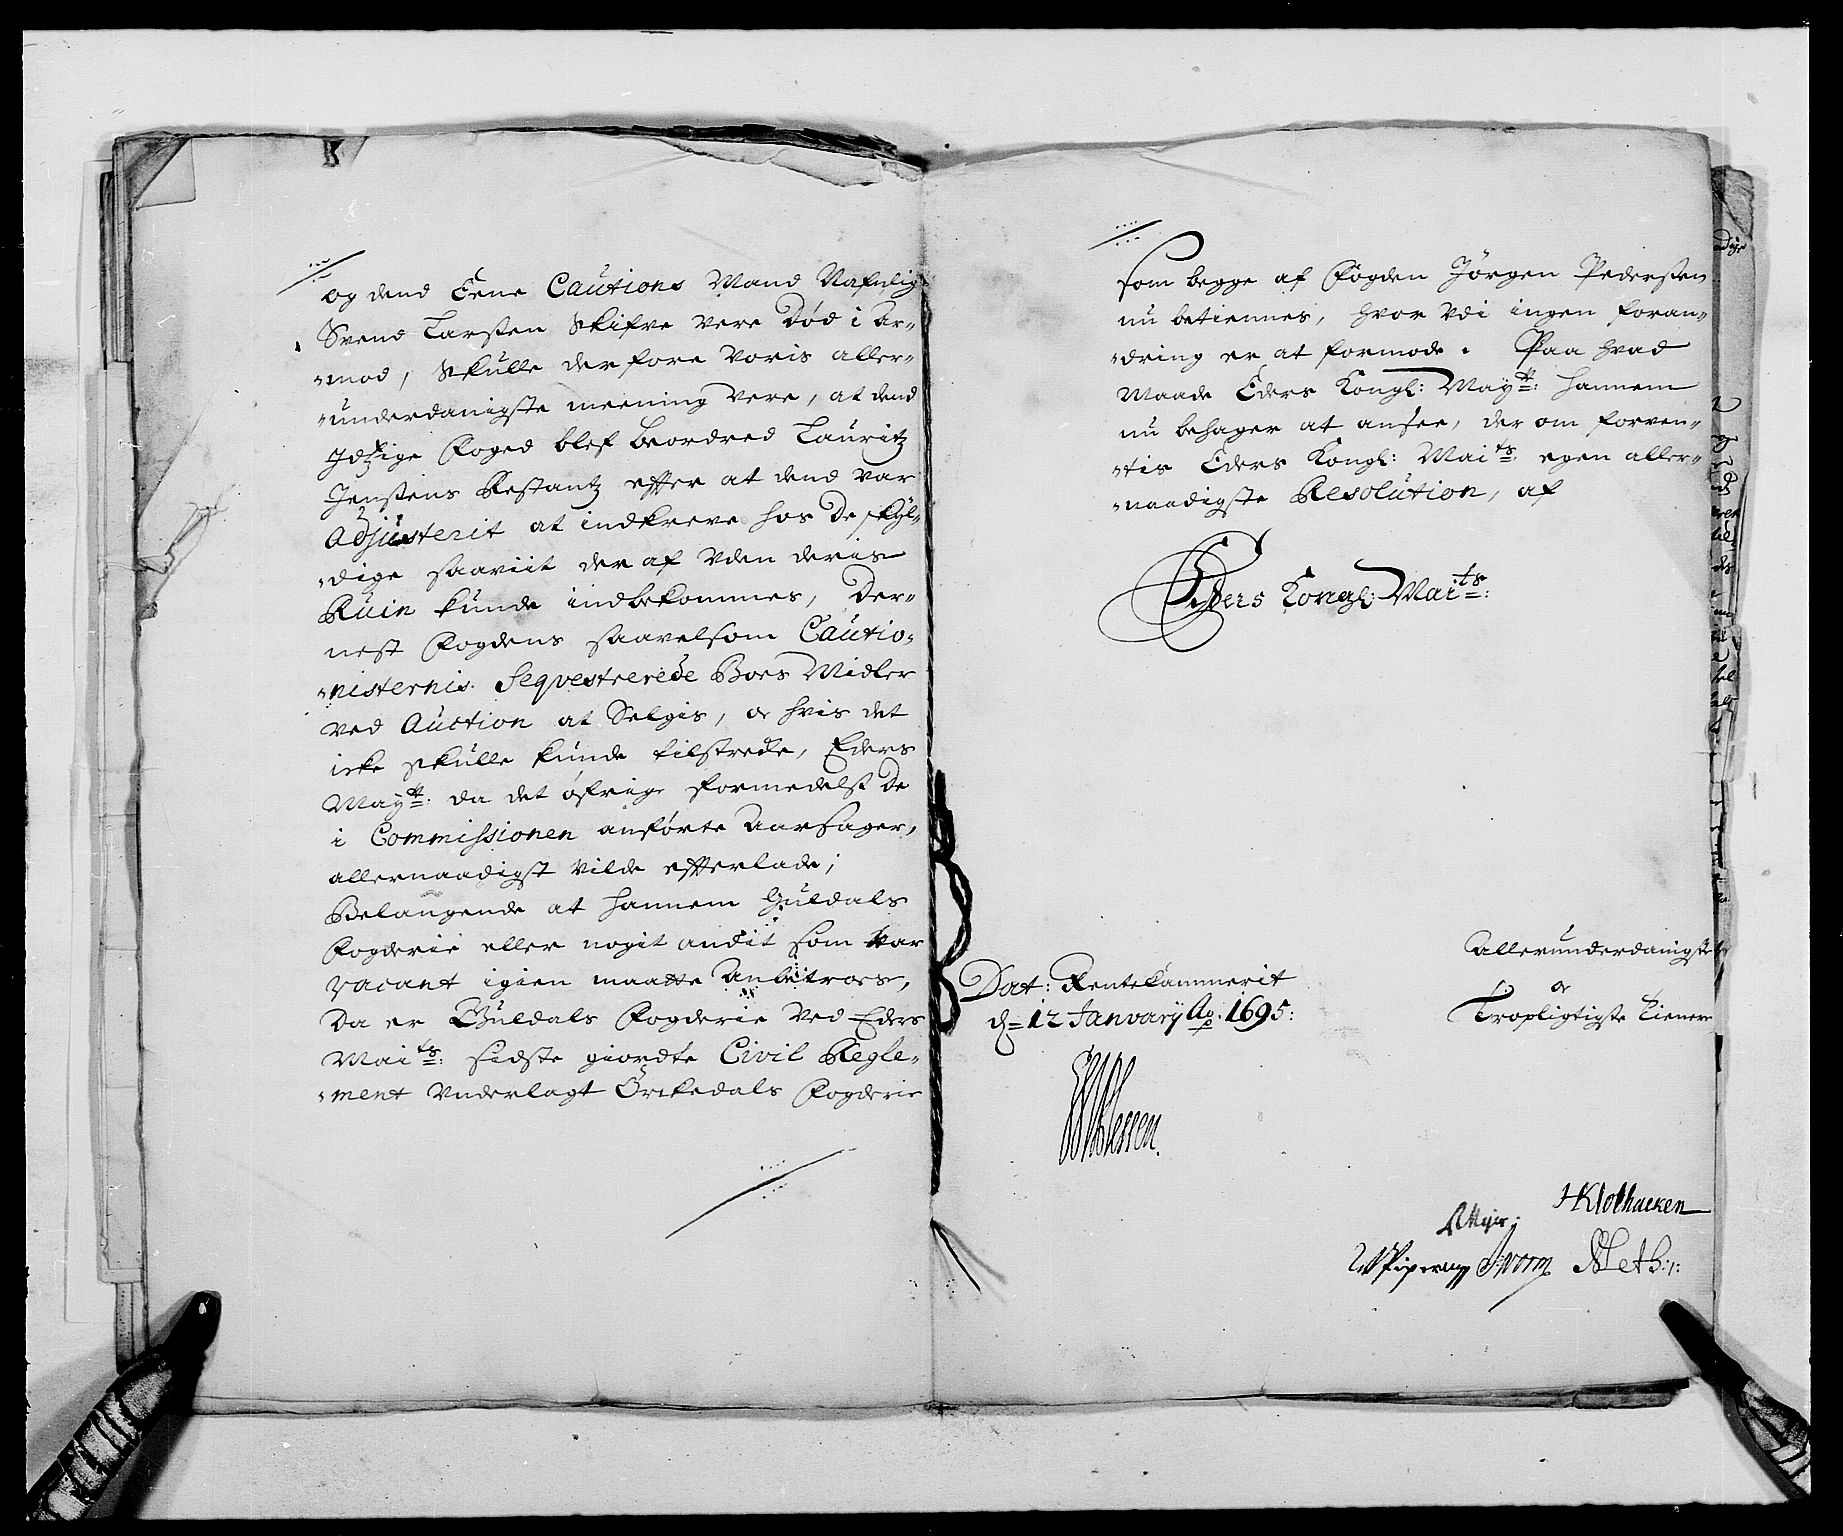 og dend Eene Cautions Mand Nafnlig
Svend Larsen skifve vere død i Ar-
-mod, skulle derfore voris aller-
-underdanigste meening vere, at dend
Jdtzige Foged blef beordred Lauritz
Jensens Restantz effter at dend var
Adjusterit at indkreve hos de skyl-
-dige saaviit der af uden deris
Ruin kunde indbekommes, Der-
nest Fogdens saavelsom Cautio-
-nisternis Seqvestrerede Boes Midler
ved Auction at Selgis, oc hvis det
icke skulle kunde tilstrede, Eders
Mayt: da det øfrige formedelst de
i Commissionen anførte Aarsager,
allernaadigst vilde effterlade;
Belangende at hannem Guldals
Fogderie eller nogit andit som var
vacant igien maatte Anbetroes,
Da er Guldals Fogderie ved Eders
Maits: sidste giordte Civil Regle-
-ment underlagt Orckedals Fogderie
som begge af Fogden Jørgen Pedersen
nu betiennes, hvor udi ingen foran-
-dring er at formode. Paa hvad
Maade Eders Kongl: Mayt: hannem
nu behager at ansee, der om forven-
-tis Eders Kongl: Maits: egen aller-
-naadigste Resolution, af
Eders Kongl: Maits:
Allerunderdanigste
oc
Tropligtigste Tienere
Dat: Rentekammerit
d= 12 January Ao. 1695:
Plessen.
HKlothacken
RMejer:
Worm Meth: